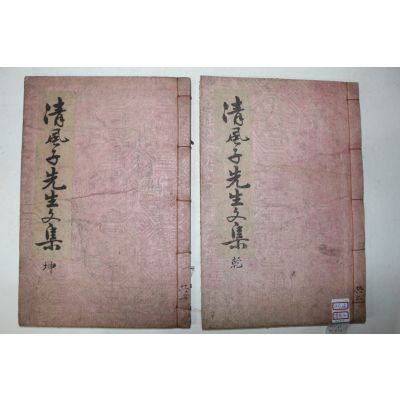 清風子先生文集 坤
清風子先生文集 乾